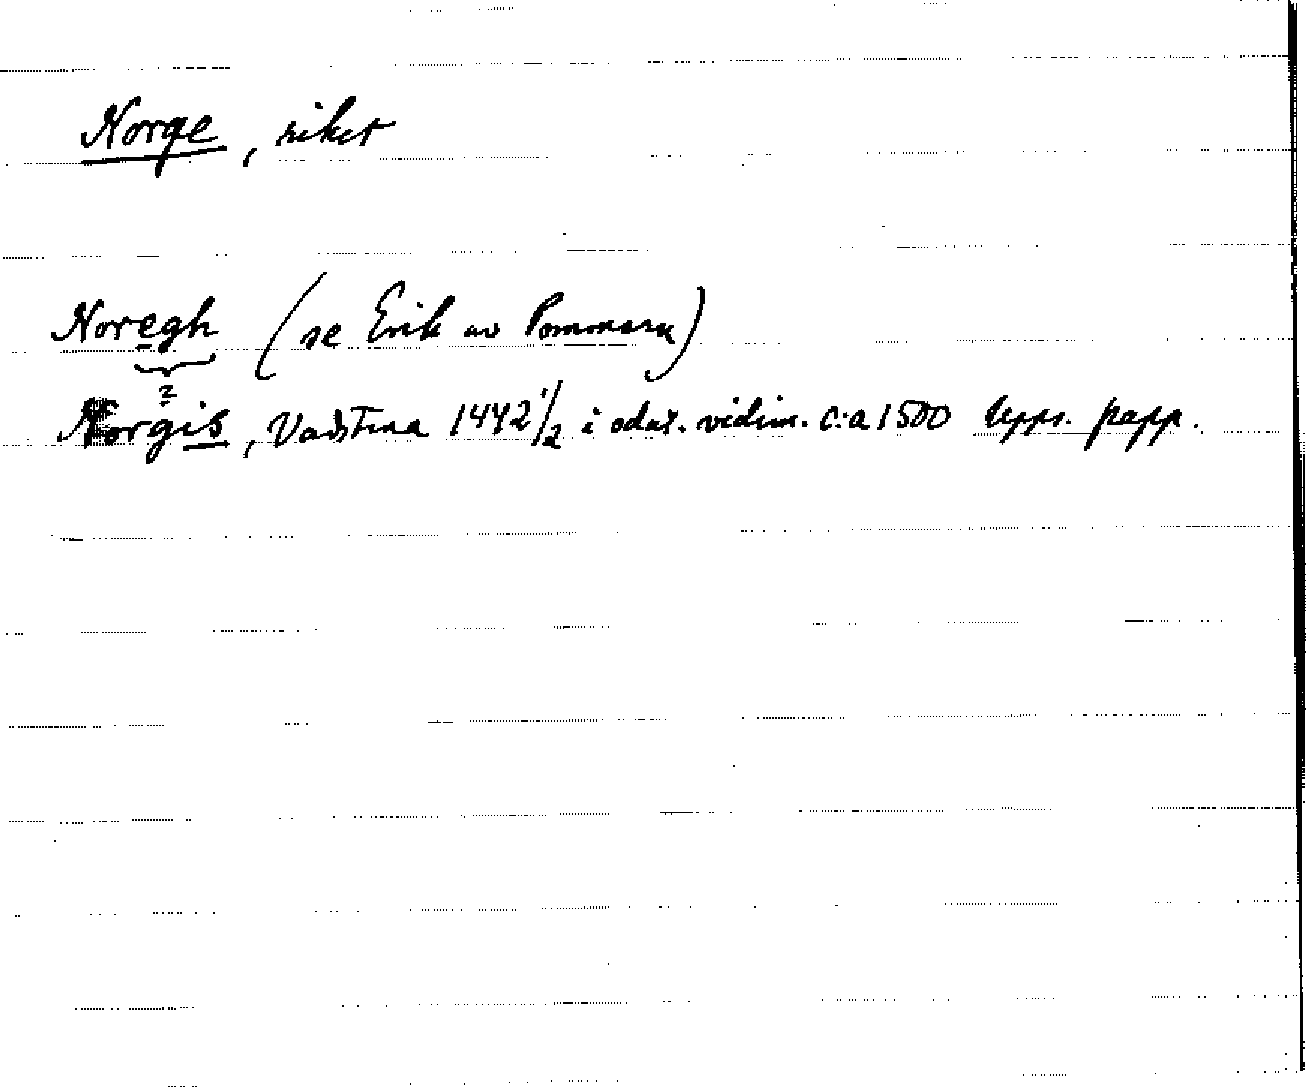 Norge, riket
Noregh (se Erik av Pommern)
?
Norgis, Vadstena 1442 1/2 i odat. vidim. c:a 1500 Upps. papp.